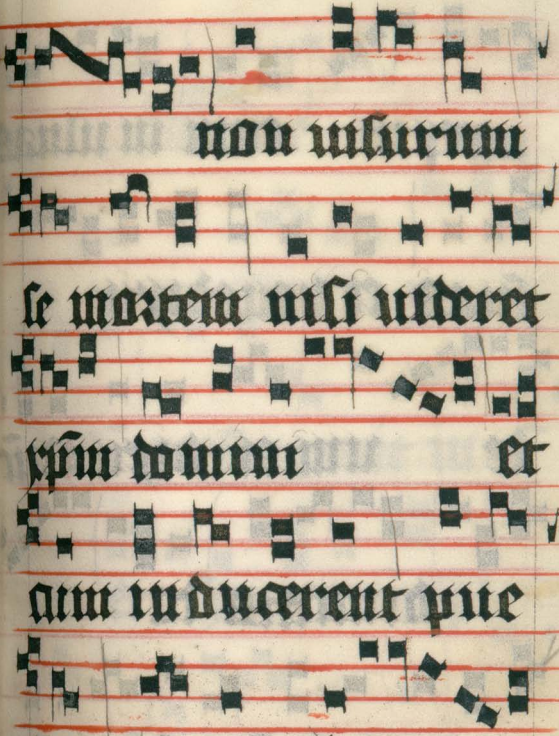 non uisurum
se mortem nisi uideret
xp̄m domini et
cum inducerent pue